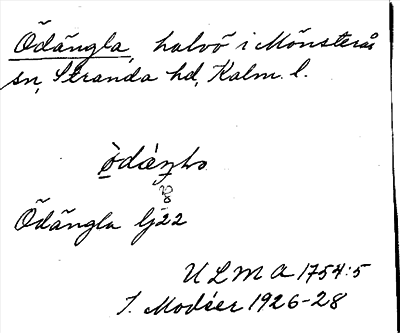 Ödängla, halvö i Mönsterås
sn, Stranda hd, Kalm. l.
Ödängla lj 22
ULMA 1754:5
I. Modéer 1926-28